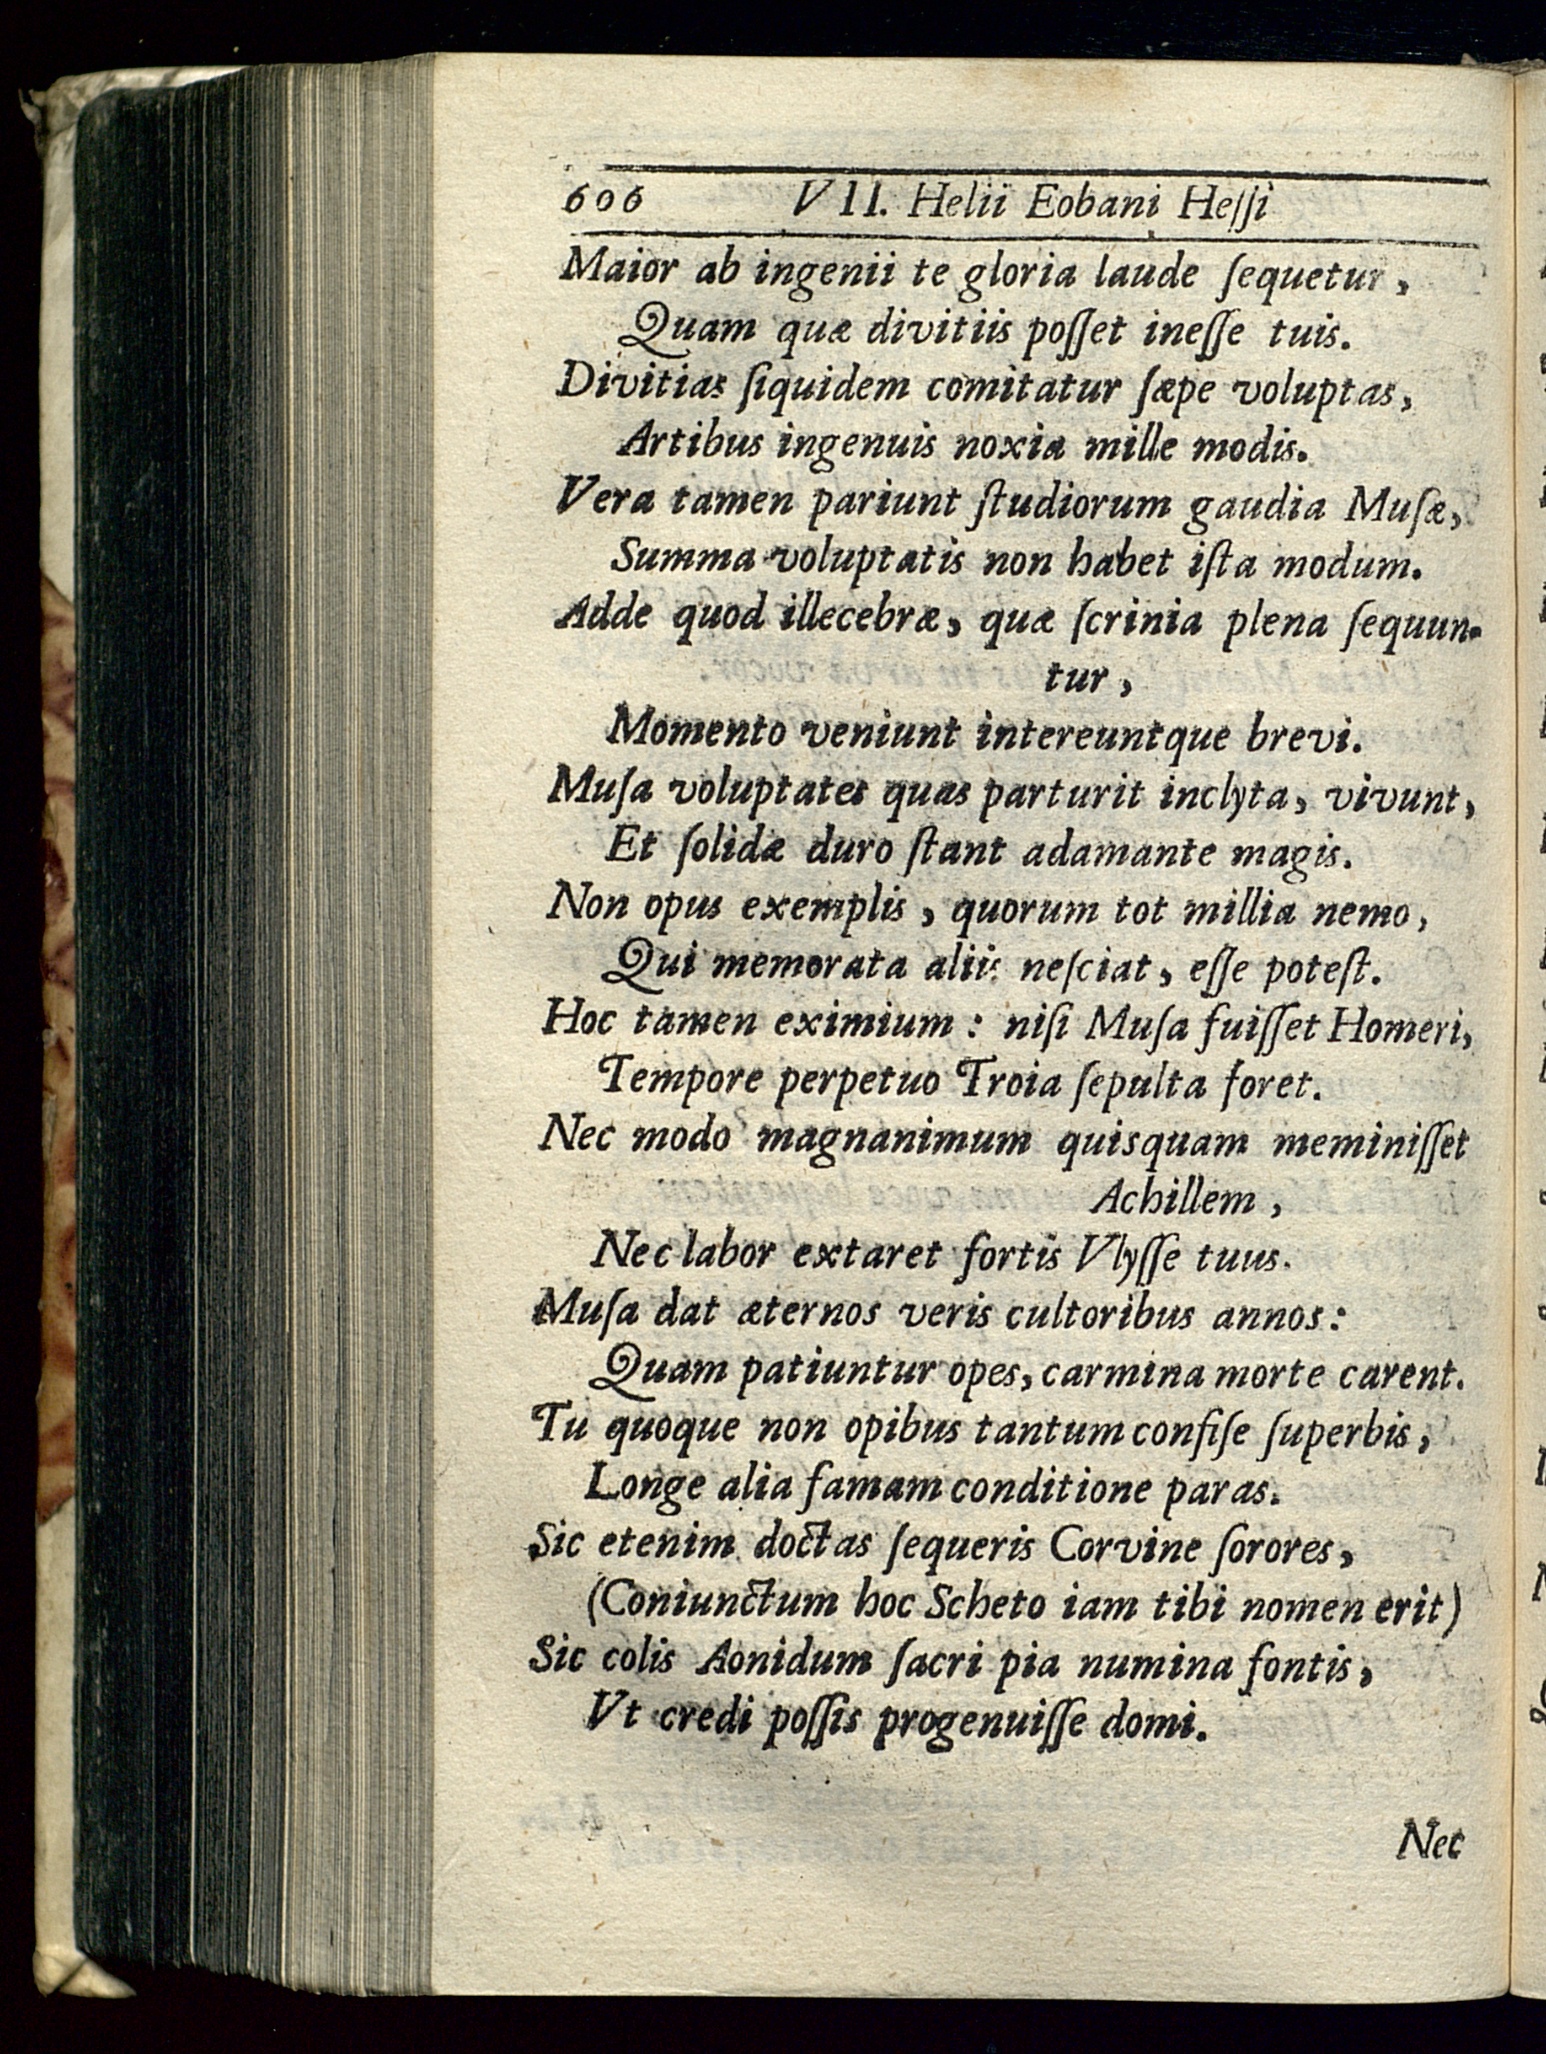 606 VII. Helii Eobani Heſſi
Maior ab ingenii te gloria laude ſequetur,
Quam quæ divitiis poſſet ineſſe tuis.
Divitias ſiquidem comitatur ſæpe voluptas,
Artibus ingenuis noxia mille modis.
Vera tamen pariunt ſtudiorum gaudia Muſæ,
Summa voluptatis non habet iſta modum.
Adde quod illecebræ, quæ ſcrinia plena ſequun-
tur,
Momento veniunt intereuntque brevi.
Muſa voluptates quas parturit inclyta, vivunt,
Et ſolidæ duro ſtant adamante magis.
Non opus exemplis, quorum tot millia nemo,
Qui memorata aliis neſciat, eſſe poteſt.
Hoc tamen eximium: niſi Muſa fuiſſet Homeri,
Tempore perpetuo Troia ſepulta foret.
Nec modo magnanimum quisquam meminiſſet
Achillem,
Nec labor extaret fortis Vlyſſe tuus.
Muſa dat æternos veris cultoribus annos:
Quam patiuntur opes, carmina morte carent.
Tu quoque non opibus tantum confiſe ſuperbis,
Longe alia famam conditione paras.
Sic etenim doctas ſequeris Corvine ſorores,
(Coniunctum hoc Scheto iam tibi nomen erit)
Sic colis Aonidum ſacri pia numina fontis,
Vt credi poſſis progenuiſſe domi.
Nec